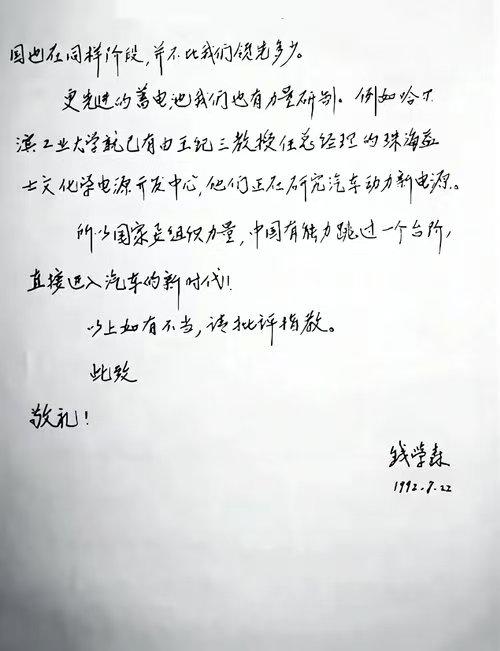 国也在同样阶段,并不比我们领先多少。
更先进的蓄电池我们也有力量研制。例如哈尔
滨工业大学就已有由王纪三教授任总经理的珠海益
士文化学电源开发中心,他们正在研究汽车动力新电源。
所以国家要组织力量,中国有能力跳过一个台阶,
直接进入汽车的新时代!
以上如有不当,请批评指教。
此致
敬礼!
钱学森
1992.8.22